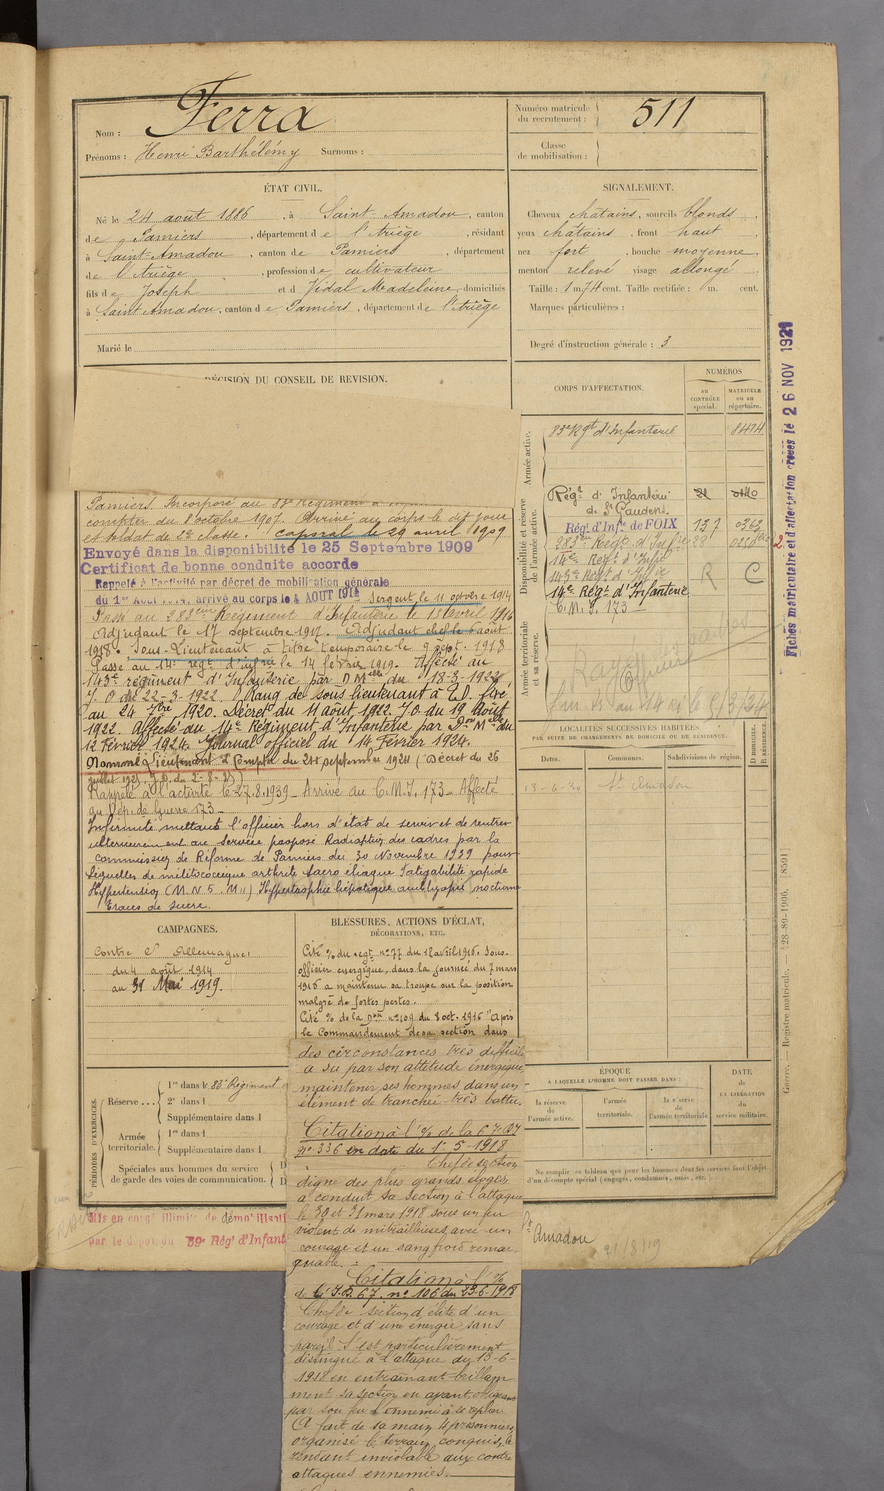 Nom : Ferra
Prénoms : Henri Barthélémy Surnoms :
Numéro matricule du recrutement : 511
Classe de mobilisation :
ÉTAT CIVIL.
Né le 24 août 1886, à Saint-Amadou, canton
de Pamiers, département de l'Ariège, résidant
à Saint Amadou, canton de Pamiers, département
de l'Ariège, profession de cultivateur
fils de Joseph et d Vidal Madeleine, domiciliés
à Saint Amadou, canton de Pamiers, département de l'Ariège
Marié le
SIGNALEMENT.
Cheveux châtains, sourcils blonds,
yeux châtains, front haut,
nez fort, bouche moyenne,
menton relevé visage allongé
Taille : 1 m 74 cent. Taille rectifiée : m. cent.
Marques particulières :
Degré d'instruction générale : 3
DÉCISION DU CONSEIL DE REVISION.
Pamiers. Incorporé au
compter du 8 octobre 1907. Arrivé au corps le dit jour
et soldat de 2e classe. Caporal le 29 avril 1909
Envoyé dans la disponibilité le 25 Septembre 1909
Certificat de bonne conduite accordé
Rappelé à l'activité par décret de mobilisation générale
du 1er Août 1914, arrivé au corps le 4 AOUT 1914 Sergent le 11 octobre 1914
Passé au 283eme Régiment d'Infanterie le 18 avril 1916
Adjudant le 17 septembre 1917. Adjudant chef le 6 août
1918. Sous-Lieutenant à titre temporaire le 9 sept. 1918
Passé au 14e regt d'infrie le 14 février 1919. Affecté au
143e régiment d'Infanterie par D Melle du 18-3-1922,
J.O du 22-3-1922. Rang de sous lieutenant à T.D. fixé
au 24 7bre 1920. Décret du 11 août 1922. J.O. du 19 Août
1922. Affecté au 14e Régiment d'Infanterie par Don Melle du
12 Février 1924. Journal officiel du 14 Février 1924.
Nommé Lieutenant à compter du 24 septembre 1924 (Décret du 26
juillet 1925. J.O. du 2-8-25)
Rappelé à l'activité le 27.8.1939_ Arrivé au C.M.I. 173_ Affecté
au Dép. de Guerre 173_
Infirmité mettant l'officier hors d'état de servir et de rentrer
ultérieurement au Service proposé Radiation des cadres par la
commission de Réforme de Pamiers du 30 Novembre 1939 pour
Séquelles de mélitococcique arthrite sacro iliaque fatigabilité rapide
Hypertension (M.N 5. M 11) Hypertrophie hépatique amblyopie nocturne
traces de sucre.
CORPS D'AFFECTATION.
NUMÉROS
au CONTRÔLE spécial.
MATRICULE ou au répertoire.
Armée active.
83e Rgt d'Infanterie 8474
Disponibilité et réserve de l'armée active.
Régt d'Infanterie
de St Gaudens.
Régt d'Infie de FOIX 137 0363
283eme Regt d'Infrie
14e Regt d'Infie
143e Regt d'Infie R C
14e Régt d'Infanterie
C.M.I. 173
Armée territoriale et sa réserve.
Rayé des cadres
Officiers
Fiches matriculaire et d'affectation créées le 26 NOV 1921
LOCALITÉS SUCCESSIVES HABITÉES
PAR SUITE DE CHANGEMENTS DE DOMICILE OU DE RÉSIDENCE.
Dates. Communes. Subdivisions de région. D DOMICILE. R RÉSIDENCE.
St Amadou
CAMPAGNES.
Contre l'Allemagne
du 4 août 1914
au 31 Mai 1919.
BLESSURES, ACTIONS D'ÉCLAT,
DÉCORATIONS, ETC.
Cité % du regt n° 77 du 12 avril 1916. Sous-
officier énergique, dans la journée du 7 mars
1916 a maintenu sa troupe sur la position
malgré de fortes pertes.
Cité % de la Don n° 109 du 8 oct. 1916 "A pris
le commandement de sa section dans
des circonstances très difficile
a su par son attitude énergique
maintenir ses hommes dans un
élément de tranchée très battu.
Citation à l'% de la 67 DI
n° 336 en date du 1er 5-1918
Chef de section
digne des plus grands éloges
a conduit sa section à l'attaque
le 30 et 31 mars 1918 sous un feu
violent de mitrailleuses, avec un
courage et un sang froid remar-
quable.
Citation à l'%
de l'I.D. 67. n° 106 du 23-6-1918
Chef de section d'élite d'un
courage et d'une énergie sans
pareil. S'est particulièrement
distingué à l'attaque du 13-6-
1918 en entrainant brillam-
ment sa section en ayant obligeant
par son feu l'ennemi à se replier.
A fait de sa main 4 prisonniers,
organisé le terrain conquis, le
rendant inviolable aux contre
attaques ennemies.
PÉRIODES D'EXERCICES.
Réserve ... 1re dans le 83e Régiment
2e dans l
Supplémentaire dans l
Armée territoriale. 1re dans l
Supplémentaire dans l
Spéciales aux hommes du service de garde des voies de communication.
ÉPOQUE
À LAQUELLE L'HOMME DOIT PASSER DANS :
la réserve de l'armée active.
l'armée territoriale.
la réserve de l'armée territoriale.
DATE
de
LA LIBÉRATION
du
service militaire.
Ne remplir ce tableau que pour les hommes dont les services font l'objet
d'un décompte spécial (engagés, condamnés, omis, etc.
Guerre. — Registre matricule. — 28-89-1906. [8591]
Mis en congé illimité de démobilisati
par le dépôt du 59e Régt d'Infant
St Amadou
31/8/19